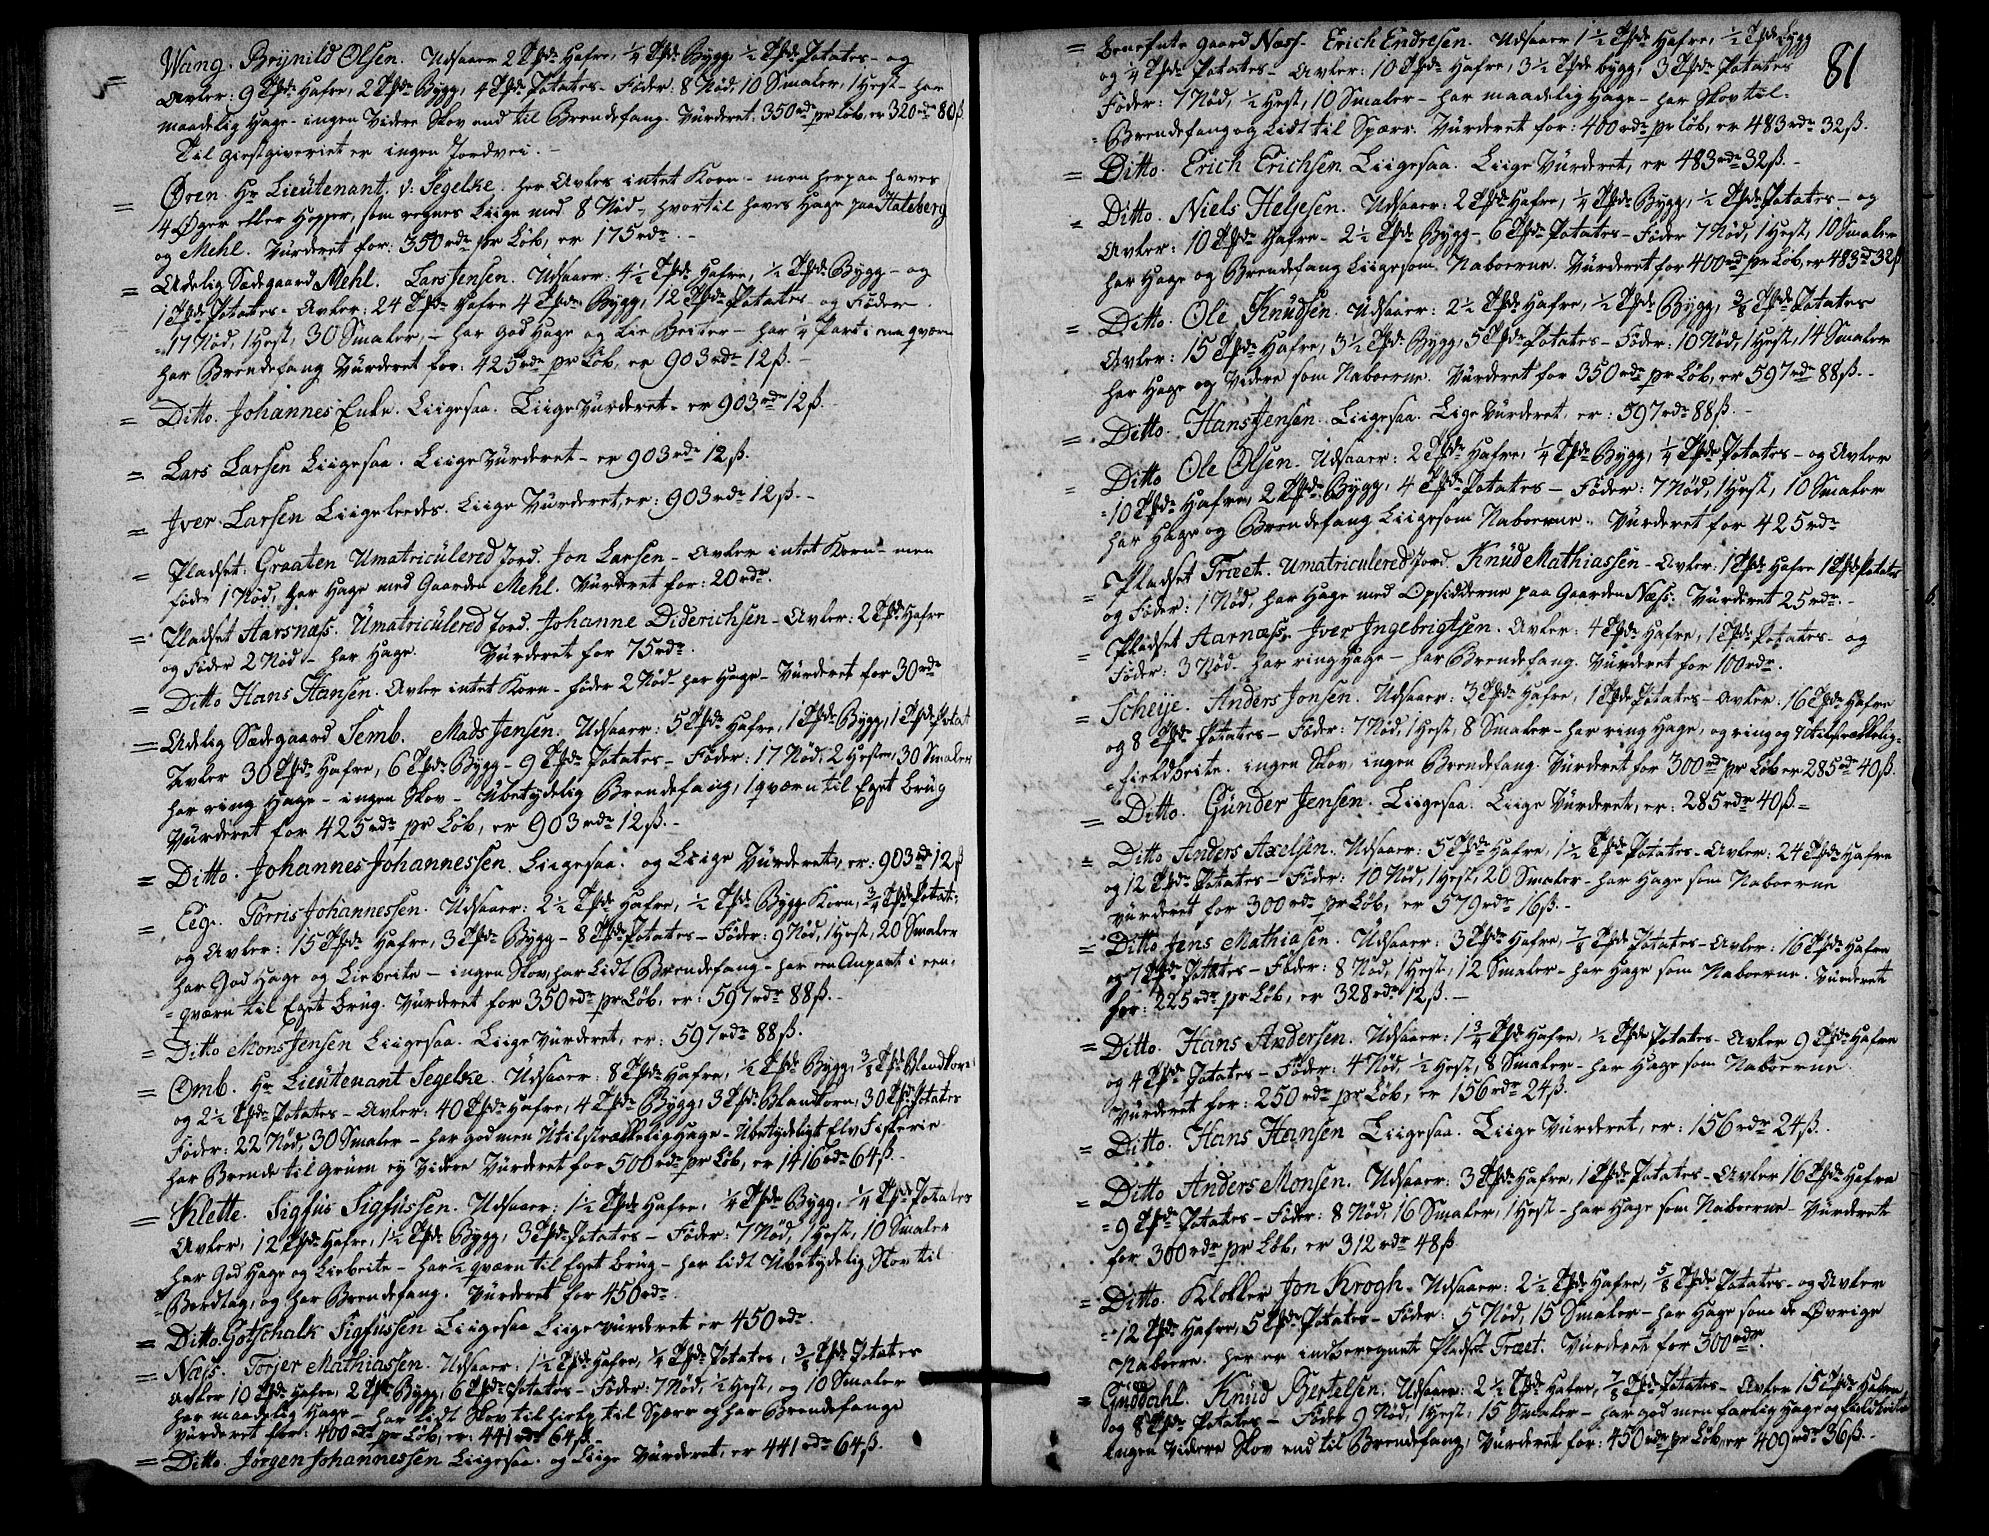 = Wang. Brynild Olsen. Udsaaer 2 Tpde Hafre, ¼ Tpde Bygg, ½ Tpde Potates – og
Avler: 9 Tpde Hafre, 2 Tpde Bygg, 4 Tpde Potates – Föder: 8 Nöd, 10 Smaler, 1 Hest – har
maadelig Hage – ingen Videre Skov end til Brendefang. Vürderet: 350 rdr pr Löb, er 320 rdr 80 ß.
Til giestgiveriet er ingen Jordvei. –
= Øren. Hr Lieutenant v: Segelke. her Avles intet Korn – men herpaa haves
4 Øger eller Hopper, som regnes Liige med 8 Nöd, hvortil haves Hage paa Hateberg
og Mehl. Vürderet for: 350 rdr pr Löb, er 175 rdr. –
= Adelig Sædegaard Mehl. Lars Jensen. Udsaaer: 4½ Tpde Hafre, ½ Tpde Bygg – og
1 Tpde Potates – Avler: 24 Tpde Hafre 4 Tpde Bygg, 12 Tpde Potates og Föder
17 Nöd, 1 Hest, 30 Smaler, – har God Hage og Lie Beiter – har ¼ Part i een qværn
har Brendefang Vürderet for: 425 rdr pr Löb, er 903 rdr 12 ß. –
= Ditto. Johannes Enke. Liigesaa. Liige Vürderet – er 903 rdr 12 ß.
= Lars Larsen Liigesaa. Liige Vürderet – er 903 rdr 12 ß.
= Iver Larsen Liigeleedes. Liige Vürderet, er: 903 rdr 12 ß. –
= Pladset: Graaten Umatriculered Jord. Jon Larsen – Avler intet Korn – men
föder 1 Nöd, har Hage med Gaarden Mehl. Vürderet for: 20 rdr.
= Pladset Aarsnæs. Umatriculered Jord. Johanne Diderichsen – Avler: 2 Tpde Hafre
og Föder 2 Nöd – har Hage. Vürderet for 75 rdr.
= Ditto Hans Hansen. Avler intet Korn – föder 2 Nöd har Hage – Vürderet for 30 rdr
= Adelig Sædegaard Semb. Mads Jensen. Udsaaer: 5 Tpde Hafre, 1 Tpde Bygg, 1 Tpde Potat
Avler 30 Tpde Hafre, 6 Tpde Bygg – 9 Tpde Potates – Föder: 17 Nöd, 2 Hester, 30 Smaler
har ring Hage – ingen Skov – Ubetydelig Brendefang, 1 qværn til Eget brüg
Vürderet for 425 rdr pr Löb, er 903 rdr 12 ß. –
= Ditto. Johannes Johannessen. Liigesaa. og Liige Vürderet, er: 903 rd 12 ß
= Eeg. Torris Johannessen. Udsaaer: 2½ Tpde Hafre, ½ Tpde Bygg Korn, ¾ Tpde Potat:
og Avler: 15 Tpde Hafre, 3 Tpde Bygg – 8 Tpde Potates – Föder: 9 Nöd, 1 Hest, 20 Smaler
har God Hage og Liebeite – ingen Skov, har Lidt Brendefang – har een Anpart i een
qværn til Eget brug. Vürderet for 350 rdr pr Löb, er: 597 rdr 88 ß. –
= Ditto Mons Jensen Liigesaa. Liige Vürderet, er: 597 rdr 88 ß.
= Omb. Hr Lieutenant Segelke. Udsaaer: 8 Tpde Hafre, ½ Tpde Bygg, ⅜ Tpde Blandkorn
og 2½ Tpde Potates – Avler: 40 Tpde Hafre, 4 Tpde Bygg, 3 Tpde Blandkorn, 30 Tpde Potates
Föder: 22 Nöd, 30 Smaler – har god men Utilstrækkelig Hage – Ubetydeligt Elv Fiskerie
har Brende til Grüen ey Videre Vürderet for 500 rdr pr Löb, er 1416 rdr 64 ß. –
= Klette. Sigfus Sigfüssen. Udsaaer: 1½ Tpde Hafre, ¼ Tpde Bygg, ¼ Tpde Potates
Avler, 12 Tpde Hafre, 1½ Tpde Bygg, 3 Tpde Potates – Föder: 7 Nöd, 1 Hest, 10 Smaler
har God Hage og Liebeite – har ½ qværn til Eget brüg – har lidt Ubetydelig Skov til
Bordtag, og har Brendefang. Vürderet for 450 rdr.
= Ditto. Gotschalk Sigfüssen Liigesaa Liige Vürderet er 450 rdr.
= Næs. Torjer Mathiassen. Udsaaer: 1½ Tpde Hafre, ¼ Tpde Potates, ⅜ Tpde Potates
Avler 10 Tpde Hafre, 2 Tpde Bygg, 6 Tpde Potates – Föder: 7 Nöd, ½ Hest, og 10 Smaler
har maadelig Hage – har lidt Skov til hielp til Spærr og har Brendefange
Vürderet for: 400 rdr pr Löb, er: 441 rdr 64 ß. –
= Ditto. Jörgen Johannessen Liigesaa. og Liige Vürderet, er 441 rdr 64 ß.
81
= Benefiite gaard Næss. Erich Endresen. Udsaaer 1½ Tpde Hafre, ½ Tpde Bygg
og ¼ Tpde Potates – Avler: 10 Tpde Hafre, 3½ Tpde bygg, 3 Tpde Potates
Föder: 7 Nöd, ½ Hest, 10 Smaler – har maadelig Hage – har Skov til
Brendefang og Lidt til Spærr. Vürderet for: 400 rdr pr Löb, er 483 rdr 32 ß.
= Ditto. Erich Erichsen. Liigesaa. Liige Vürderet, er 483 rdr 32 ß. –
= Ditto. Niels Helgesen. Udsaaer: 2 Tpde Hafre, ¼ Tpde Bygg, ½ Tpde Potates – og
Avler: 10 Tpde Hafre – 2½ Tpde Bygg – 6 Tpde Potates – Föder 7 Nöd, 1 Hest, 10 Smaler
har Hage og Brendefang Liigesom Naboerne. Vürderet for 400 rdr pr Löb, er 483 rd 32 ß
= Ditto. Ole Knudsen. Udsaaer: 2½ Tpde Hafre, ½ Tpde Bygg, ⅜ Tpde Potates
Avler: 15 Tpde Hafre, 3½ Tpde Bygg, 5 Tpde Potates – Föder: 10 Nöd, 1 Hest, 14 Smaler
har Hage og Videre som Naboerne. Vürderet for 350 rdr pr Löb, er 597 rdr 88 ß. –
= Ditto. Hans Jensen. Liigesaa. Lige Vürderet, er: 597 rdr 88 ß. –
= Ditto Ole Olsen. Udsaaer: 2 Tpde Hafre, ¼ Tpde Bygg, ¼ Tpde Potates – og Avler
10 Tpde Hafre, 2 Tpde Bygg, 4 Tpde Potates – Föder: 7 Nöd, 1 Hest, 10 Smaler
har Hage og Brendefang Liigesom Naboerne. Vürderet for 425 rdr
= Pladset Træet. Umatriculered Jord. Knüd Mathiassen – Avler: 1 Tpde Hafre 1 Tpde Potates
og Föder: 1 Nöd, har Hage med Opsidderne paa Gaarden Næss. Vürderet 25 rdr. –
= Pladset Aarnæss. Iver Ingebrigtsen. Avler: 4 Tpde Hafre, 1 Tpde Potates – og
Föder: 3 Nöd – har ring Hage – har Brendefang. Vürderet for 100 rdr.
= Scheije. Anders Jonsen. Udsaaer: 3 Tpde Hafre, 1 Tpde Potates – Avler: 16 Tpde Hafre
og 8 Tpde Potates – Föder: 7 Nöd, 1 Hest, 8 Smaler – har ring Hage, og ring og Utilstrækkelig
Fieldbeite. ingen Skov, ingen Brendefang. Vürderet for 300 rdr pr Löb er 285 rdr 40 ß.
= Ditto. Günder Jensen. Liigesaa. Liige Vürderet, er: 285 rdr 40 ß. –
= Ditto Anders Axelsen. Udsaaer: 5 Tpde Hafre, 1½ Tpde Potates – Avler: 24 Tpde Hafre
og 12 Tpde Potates – Föder: 10 Nöd, 1 Hest, 20 Smaler – har Hage som Naboerne
Vürderet for 300 rdr pr Löb, er 579 rdr 16 ß. –
= Ditto Jens Mathiasen. Udsaaer: 3 Tpde Hafre, ⅞ Tpde Potates – Avler: 16 Tpde Hafre
og 7 Tpde Potates – Föder: 8 Nöd, 1 Hest, 12 Smaler – har Hage som Naboerne. Vürderet
for: 225 rdr pr Löb, er 328 rdr 12 ß. –
= Ditto. Hans Andersen. Udsaaer: 1¾ Tpde Hafre, ½ Tpde Potates – Avler 9 Tpde Hafre
og 4 Tpde Potates – Föder: 4 Nöd, ½ Hest, 8 Smaler – har Hage som Naboerne
Vürderet for: 250 rdr pr Löb, er 156 rdr 24 ß.
= Ditto. Hans Hansen Liigesaa. Liige Vürderet, er: 156 rdr 24 ß.
= Ditto Anders Monsen. Udsaaer: 3 Tpde Hafre, 1 Tpde Potates – Avler 16 Tpde Hafre
9 Tpde Potates – Föder: 8 Nöd, 16 Smaler, 1 Hest – har Hage som Naboerne – Vürderet
for 300 rdr pr Löb, er 312 rdr 48 ß.
= Ditto. Klokker Jon Krogh. Udsaaer: 2½ Tpde Hafre, ⅝ Tpde Potates – og Avler
12 Tpde Hafre, 5 Tpde Potates – Föder: 5 Nöd, 15 Smaler – har Hage som de Øvrige
Naboere. her er indberegnet Pladset Træet. Vürderet for 300 rdr.
= Guddahl. Knüd Bertelsen. Udsaaer: 2½ Tpde Hafre, ⅞ Tpde Potates – Avler 15 Tpde Hafre
og 8 Tpde Potates – Föder 9 Nöd, 1 Hest, 15 Smaler – har god men farlig Hage og Fieldbeite
Ingen Videre Skov end til Brendefang, Vürderet for: 450 rdr pr Löb er 409 rdr 36 ß. –